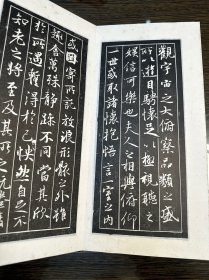 觀宇宙之大俯察品類之盛
所以遊目騁懷足以極視聽之
娛信可樂也夫人之相與俯仰
一世或取諸懷抱悟言一室之內
或因寄所託放浪形骸之外雖
趣舍萬殊靜躁不同當其欣
於所遇暫得於己快然自足不
知老之將至及其所之